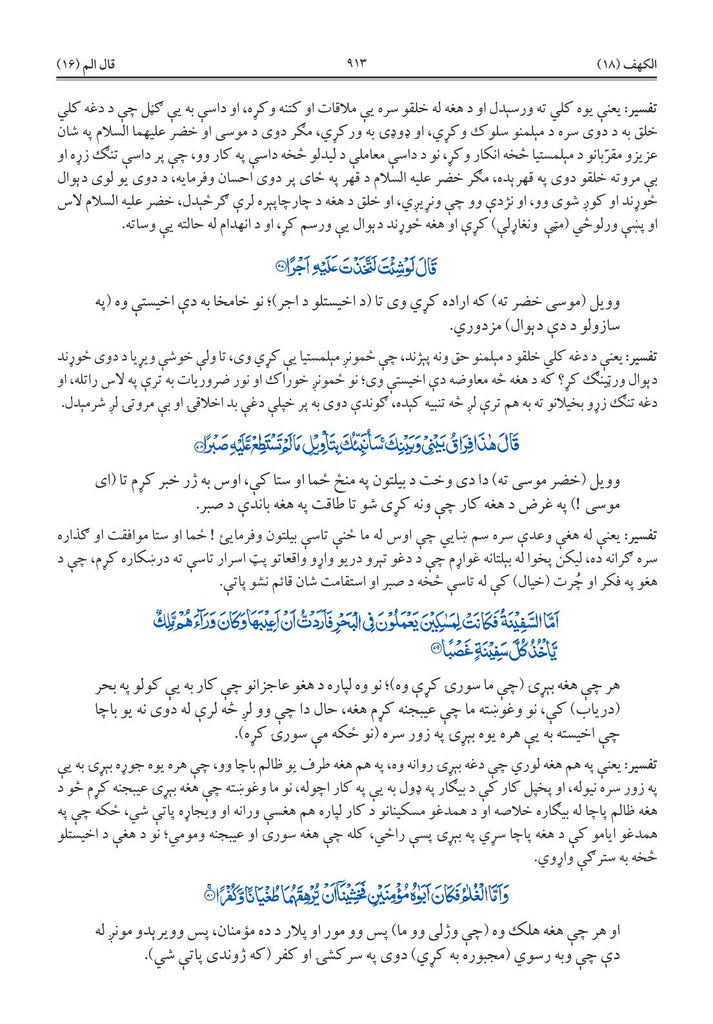 الکهف (۱۸)
۹۱۳
قال الم (۱۶)
تفسیر: یعنې یوه کلي ته ورسېدل او د هغه له خلقو سره یې ملاقات او کتنه وکړه، او داسې به یې ګڼل چې د دغه کلي
خلق به د دوی سره د مېلمنو سلوک وکړي، او ډوډۍ به ورکړي، مګر دوی د موسی او خضر علیهما السلام په شان
عزیزو مقرّبانو د مېلمستیا څخه انکار وکړ، نو د داسې معاملې د لیدلو څخه داسې په کار وو، چې پر داسې تنګ زړه او
بې مروته خلقو دوی په قهرېده، مګر خضر علیه السلام د قهر په ځای پر دوی احسان وفرمایه، د دوی یو لوی دېوال
ځوړند او کوږ شوی وو، او نژدې وو چې ونړېږي، او خلق د هغه د چارچاپېره لرې ګرځېدل، خضر علیه السلام لاس
او پښې ورلوڅې (مټې ونغاړلې) کړې او هغه ځوړند دېوال یې ورسم کړ، او د انهدام له حالته یې وساته.
قَالَ لَوْ شِئْتَ لَتَّخَذْتَ عَلَيْهِ اَجْرًا ﴿۷۷﴾
وویل (موسی خضر ته) که اراده کړې وی تا (د اخیستلو د اجر)؛ نو خامخا به دې اخیستې وه (په
سازولو د دې دېوال) مزدوري.
تفسیر: یعنې د دغه کلي خلقو د مېلمنو حق ونه پېژند، چې ځمونږ مېلمستیا یې کړې وی، تا ولې خوشې وړیا د دوی ځوړند
دېوال ورټینګ کړ؟ که د هغه څه معاوضه دې اخیستې وی؛ نو ځمونږ خوراک او نور ضروریات به ترې په لاس راتله، او
دغه تنګ زړو بخیلانو ته به هم ترې لږ څه تنبیه کېده، ګوندې دوی به پر خپلې دغې بد اخلاقۍ او بې مروتۍ لږ شرمېدل.
قَالَ هٰذَا فِرَاقُ بَيْنِيْ وَبَيْنِكَ سَاُنَبِّئُكَ بِتَاْوِيْلِ مَا لَمْ تَسْتَطِعْ عَّلَيْهِ صَبْرًا ﴿۷۸﴾
وویل (خضر موسی ته) دا دی وخت د بیلتون په منځ ځما او ستا کې، اوس به ژر خبر کړم تا (ای
موسی !) په غرض د هغه کار چې ونه کړی شو تا طاقت په هغه باندې د صبر.
تفسیر: یعنې له هغې وعدې سره سم ښایي چې اوس له ما ځنې تاسې بیلتون وفرمایئ ! ځما او ستا موافقت او ګذاره
سره ګرانه ده، لیکن پخوا له بېلتانه غواړم چې د دغو تېرو دریو واړو واقعاتو پټ اسرار تاسې ته درښکاره کړم، چې د
هغو په فکر او چُرت (خیال) کې له تاسې څخه د صبر او استقامت شان قائم نشو پاتې.
اَمَّا السَّفِيْنَةُ فَكَانَتْ لِمَسٰكِيْنَ يَعْمَلُوْنَ فِي الْبَحْرِ فَاَرَدْتُّ اَنْ اَعِيْبَهَا وَكَانَ وَرَآءَهُمْ مَّلِكٌ
يَّاْخُذُ كُلَّ سَفِيْنَةٍ غَصْبًا ﴿۷۹﴾
هر چې هغه بېړۍ (چې ما سورۍ کړې وه)؛ نو وه لپاره د هغو عاجزانو چې کار به یې کولو په بحر
(دریاب) کې، نو وغوښته ما چې عیبجنه کړم هغه، حال دا چې وو لږ څه لرې له دوی نه یو باچا
چې اخیسته به یې هره یوه بېړۍ په زور سره (نو ځکه مې سورۍ کړه).
تفسیر: یعنې په هم هغه لوري چې دغه بېړۍ روانه وه، په هم هغه طرف یو ظالم باچا وو، چې هره یوه جوړه بېړۍ به یې
په زور سره نیوله، او پخپل کار کې د بیګار په ډول به یې په کار اچوله، نو ما وغوښته چې هغه بېړۍ عیبجنه کړم څو د
هغه ظالم پاچا له بیګاره خلاصه او د همدغو مسکینانو د کار لپاره هم هغسې ورانه او ویجاړه پاتې شي، ځکه چې په
همدغو ایامو کې د هغه پاچا سړي په بېړۍ پسې راځي، کله چې هغه سورۍ او عیبجنه ومومي؛ نو د هغې د اخیستلو
څخه به سترګې واړوي.
وَاَمَّا الْغُلٰمُ فَكَانَ اَبَوٰهُ مُؤْمِنَيْنِ فَخَشِيْنَآ اَنْ يُّرْهِقَهُمَا طُغْيَانًا وَّكُفْرًا ﴿۸۰﴾
او هر چې هغه هلک وه (چې وژلی وو ما) پس وو مور او پلار د ده مؤمنان، پس وویرېدو مونږ له
دې چې وبه رسوي (مجبوره به کړي) دوی په سرکشۍ او کفر (که ژوندی پاتې شي).